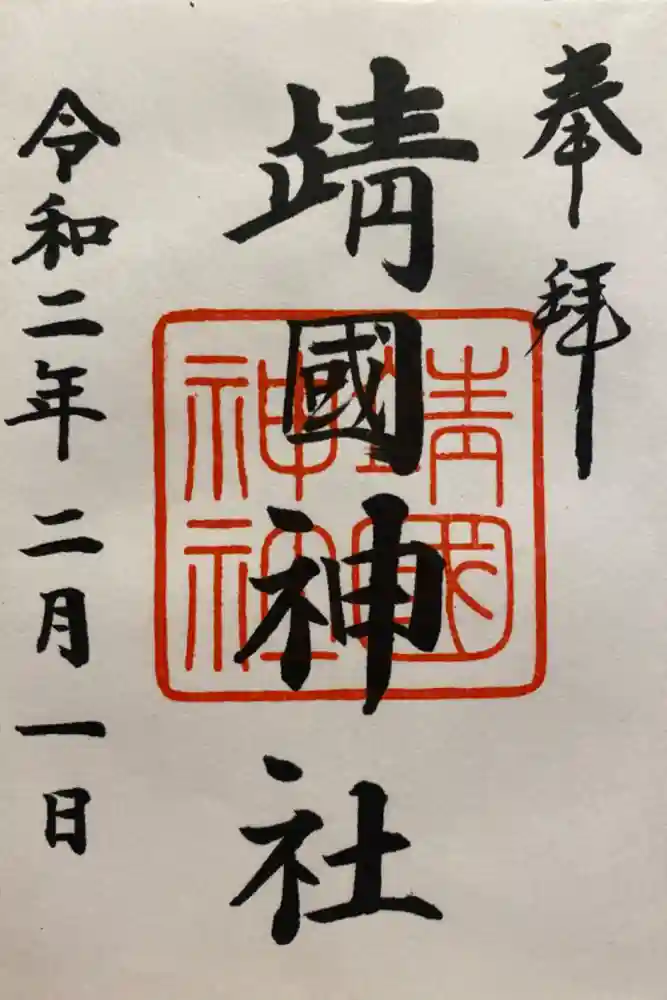 奉拜
靖國神社
靖國
神社
令和二年二月一日